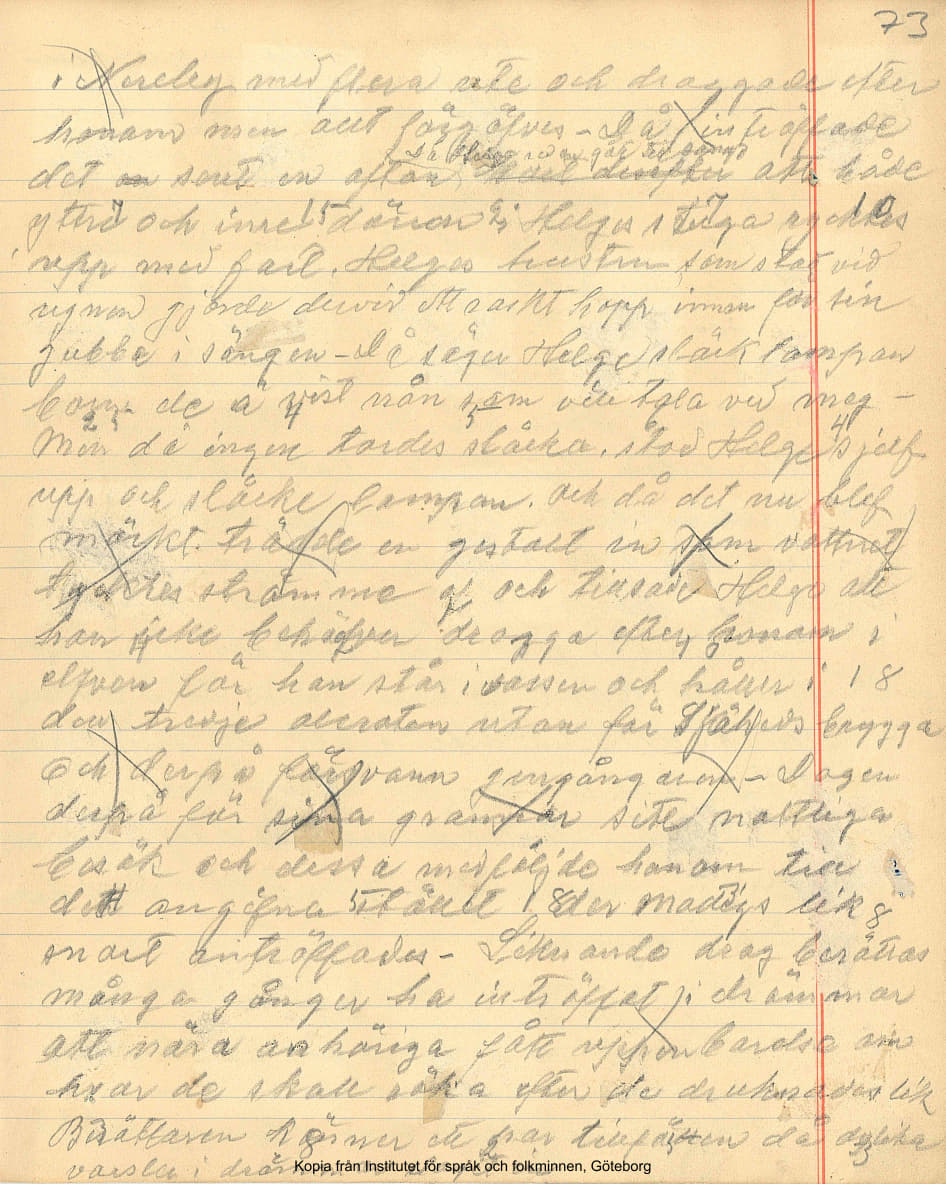 73
i Nereby med flera ute och draggade efter
honom men allt förgöfves – Då inträffade
Då Helge redan gått till sängs
det sent en afton att både
yttre och inre dörren i Helges stuga rycktes
upp med fart. Helges hustru som stod vid
ugnen gjorde dervid ett raskt hopp innan för sin
gubbe i sängen – Då säger Helge släck lampan
barn de ä visst nån som vill tala ved meg –
Men då ingen tordes släcka, stod Helge sjelf
upp och släckte lampan. Och då det nu blef
mörkt trädde en gestalt in som vattnet
tycktes strömma af och tillsade Helge att
han icke behöfver dragga efter honom i
elfven för han står i vassen och håller i
den tredje utan för brygga
Och derpå försvann gengångaren – Dagen
derpå för sina grannar sitt nattliga
besök och dessa medföljde honom till
det angifna stället der lik
snart anträffades – Liknande drag berättas
många gånger ha inträffat i drömmar
att nära anhöriga fått uppenbarelse om
hvar de skall söka efter de drunknades lik
Berättaren känner ett par tillfällen då dylika
varsler i
Kopia från Institutet för språk och folkminnen, Göteborg